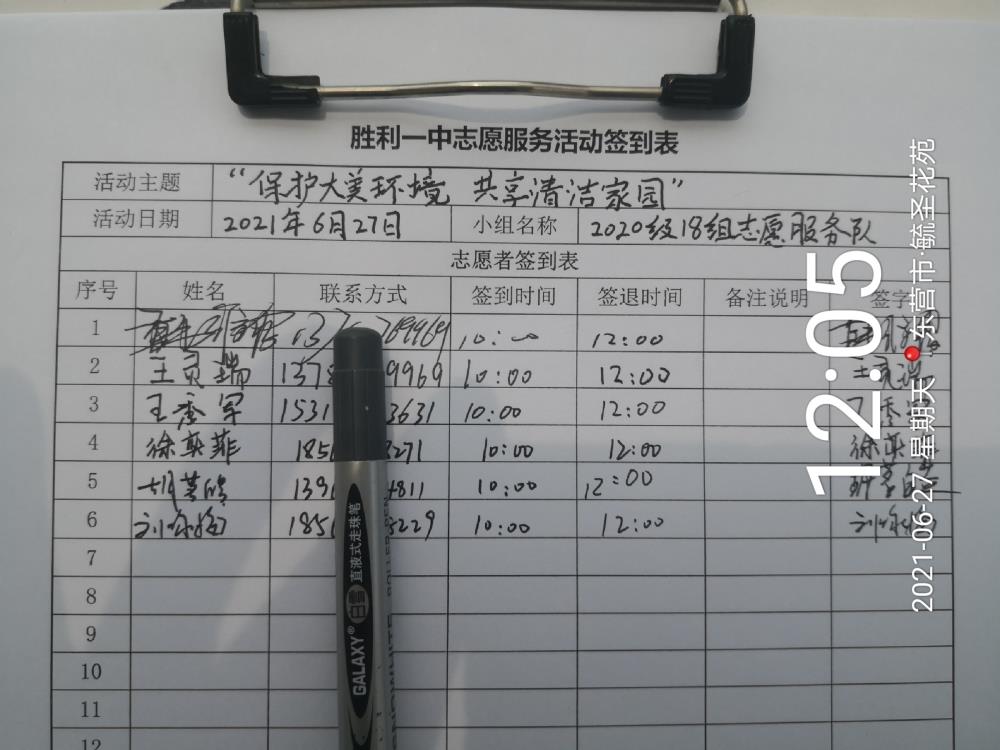 胜利一中志愿服务活动签到表
活动主题 “保护大美环境 共享清洁家园”
活动日期 2021年6月27日 小组名称 2020级18组志愿服务队
志愿者签到表
序号 姓名 联系方式 签到时间 签退时间 备注说明 签字
1 12:00
2 王灵瑞 1378 9969 10:00 12:00 王灵瑞
3 王秀军 1531 3631 10:00 12:00
4 徐英菲 185 3271 10:00 12:00 徐英菲
5 139 4811 10:00 12:00
6 185 5229 10:00 12:00
7
8
9
10
11
12
GALAXY® 白雪 直液式走珠笔
12:05
2021-06-27 星期天 东营市·毓圣花苑